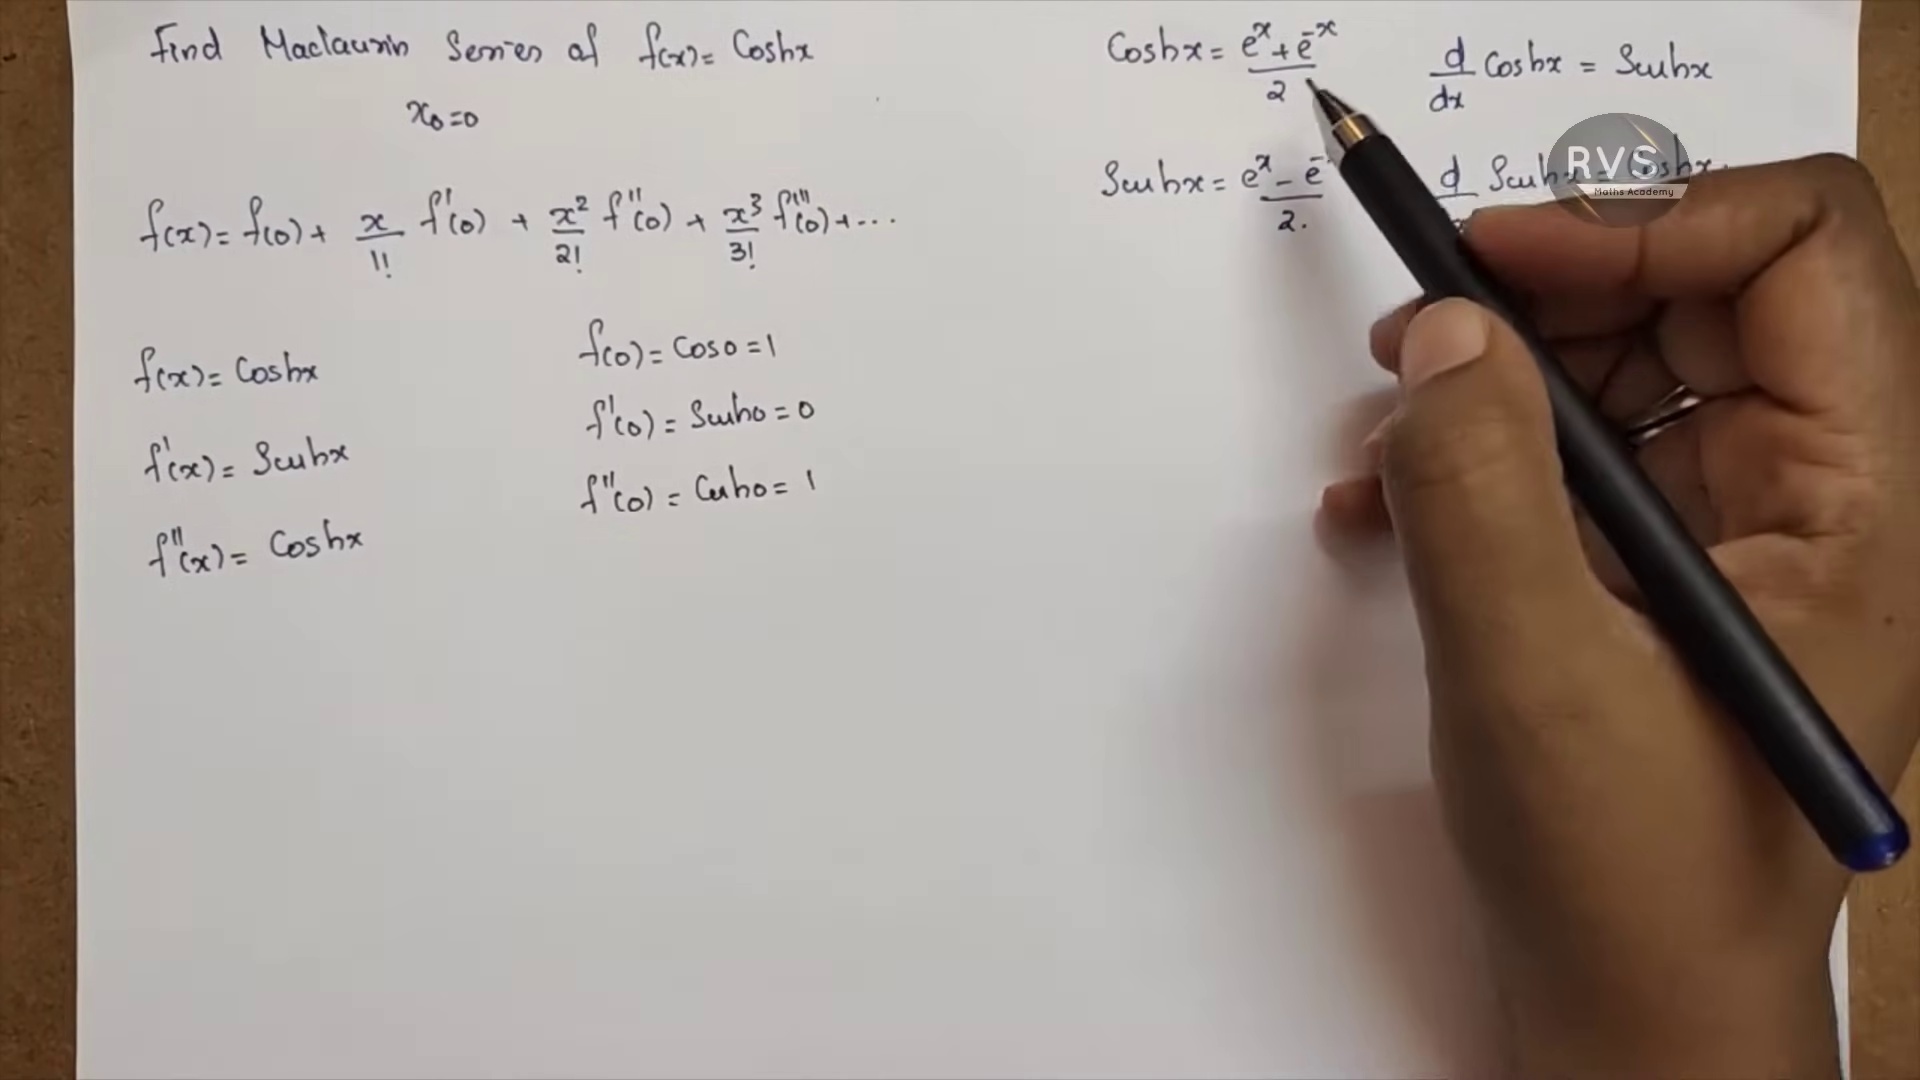 Find Maclaurin Series of f(x) = Coshx
x₀=0
f(x) = f(0) + x/1! f'(0) + x²/2! f''(0) + x³/3! f'''(0) + ...
f(x) = Coshx
f'(x) = Sinhx
f''(x) = Coshx
f(0) = Cos0 = 1
f'(0) = Sinh0 = 0
f''(0) = Cosh0 = 1
Coshx = (e^x + e^-x)/2
d/dx Coshx = Sinhx
Sinhx = e^x - e^- /2.
d Sinhx = Coshx.
RVS
Maths Academy